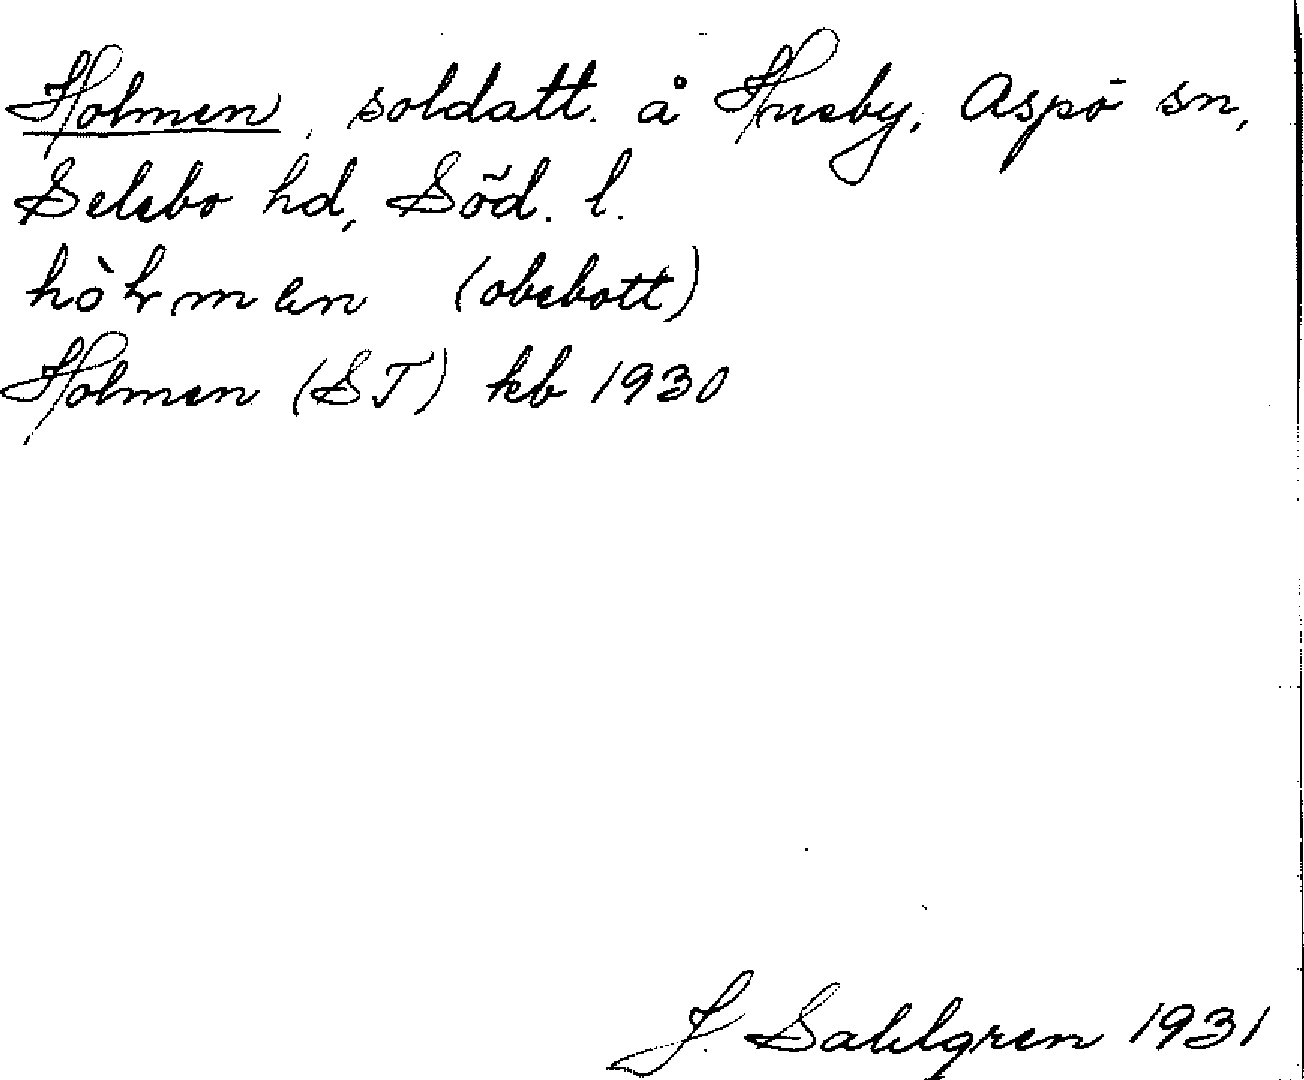 Holmen, soldatt. å Husby, Aspö sn,
Selebo hd, Söd. l.
(obebott)
Holmen (ST) kb 1930
J. Sahlgren 1931